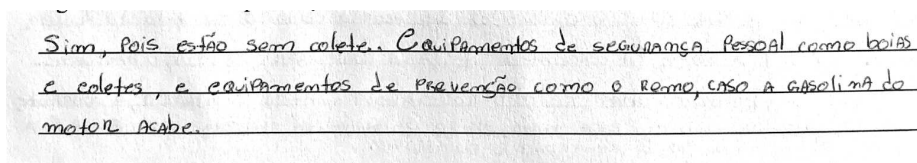 Sim, Pois estão sem colete. Equipamentos de segurança Pessoal como boias
e coletes, e equipamentos de prevenção como o remo, caso a gasolina do
motor acabe.